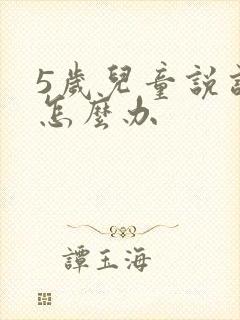 5歲兒童說
怎麼办
譚玉海